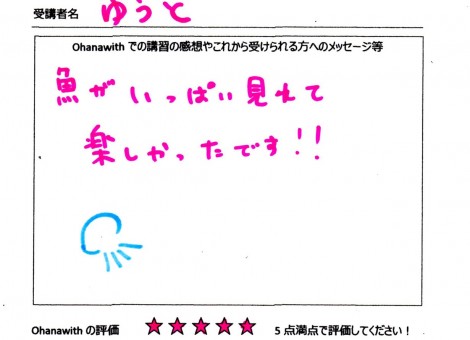 受講者名 ゆうと
Ohanawith での講習の感想やこれから受けられる方へのメッセージ等
魚がいっぱい見れて
楽しかったです!!
Ohanawith の評価 ★★★★★ 5 点満点で評価してください！